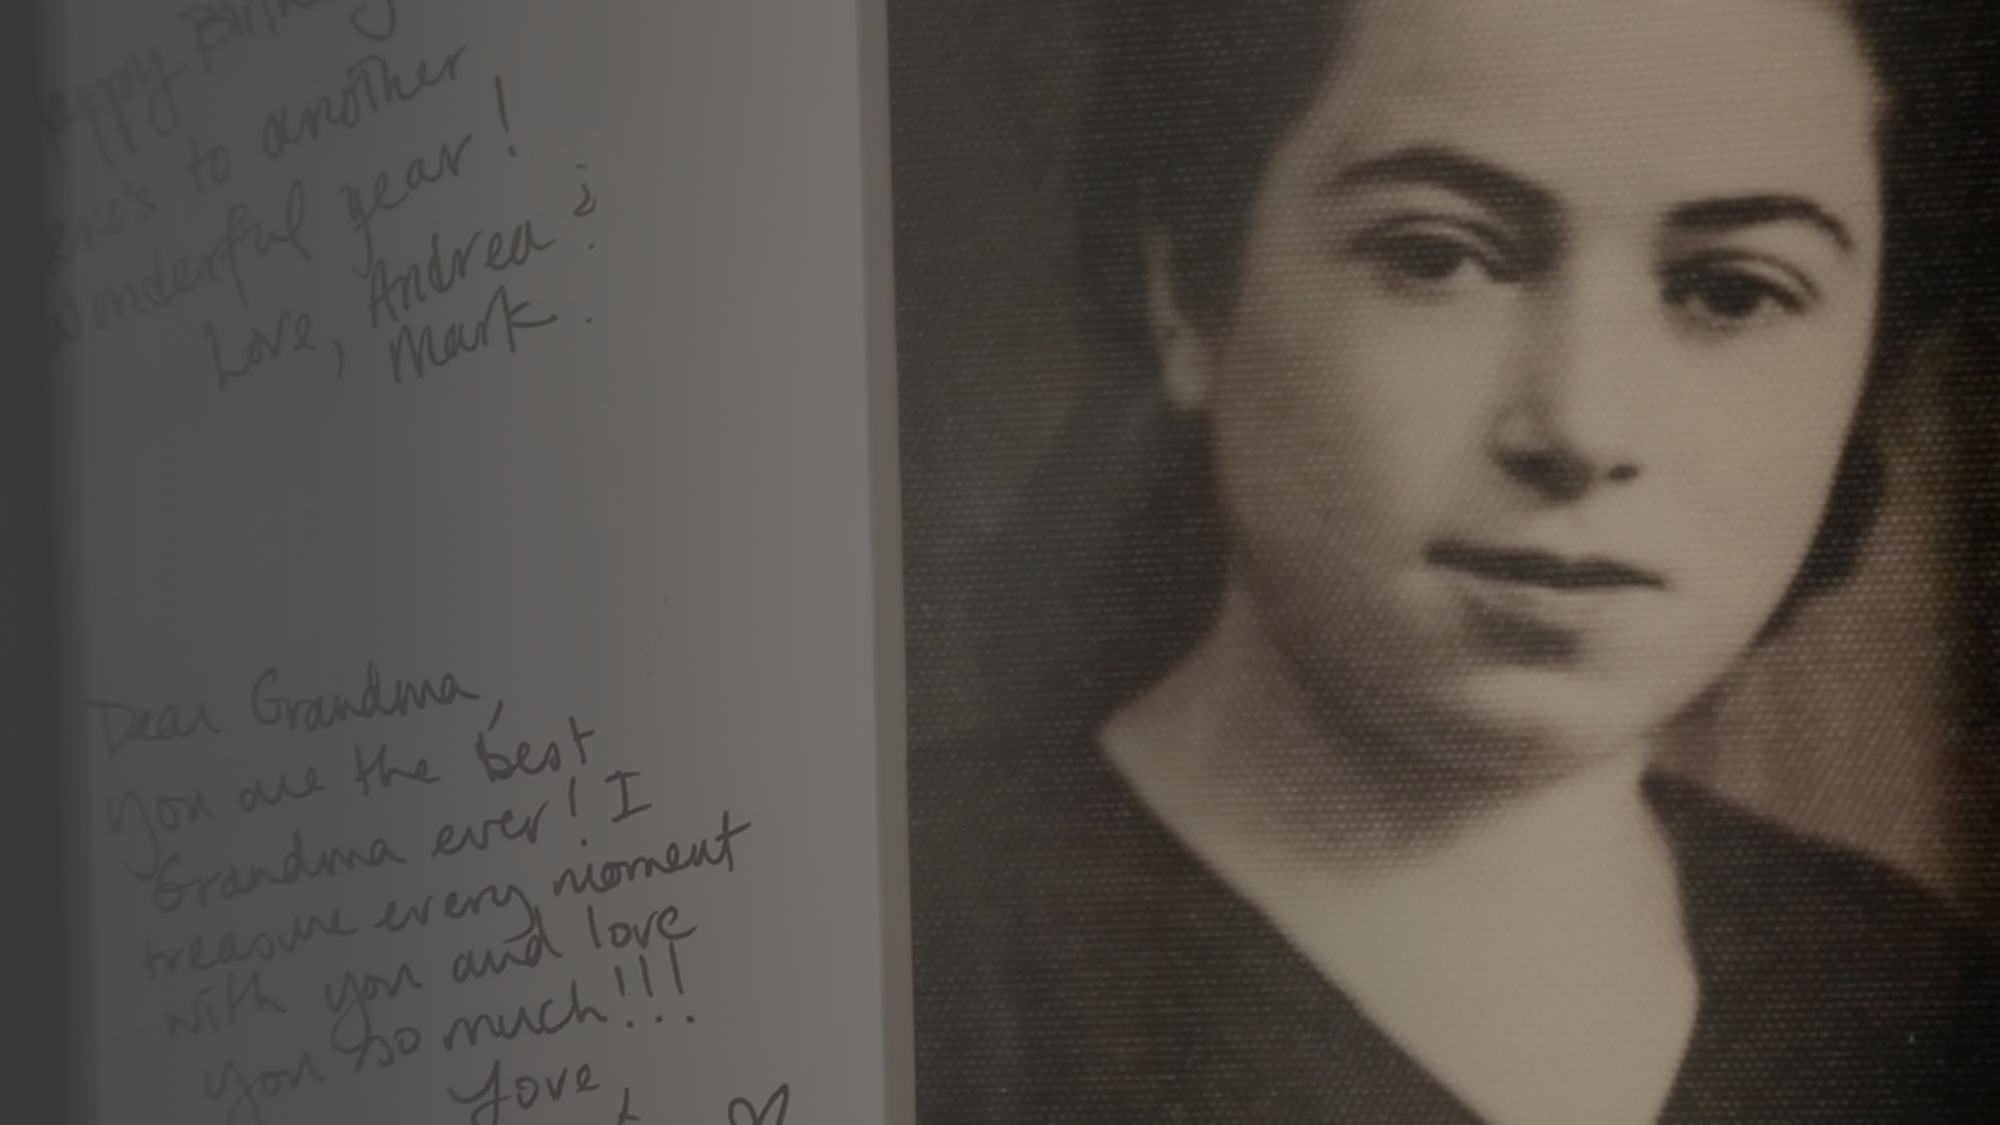 Happy Birthday
Here's to another
wonderful year!
Love, Andrea &
Mark.
Dear Grandma,
You are the best
Grandma ever! I
treasure every moment
with you and love
you so much!!!
Love